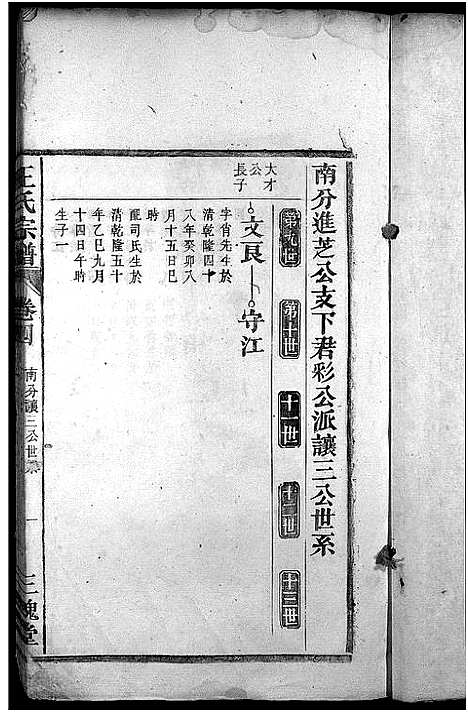 南分進芝公支下君彩公派讓三公世系
第九世
第十世
十一世
十二世
十三世
大才
公
長子
文良
守江
字俏先生於
清乾隆四十
八年癸卯八
月十五日巳
時
配司氏生於
清乾隆五十
年乙巳九月
十四日午時
生子一
王氏宗譜
卷四
南分讓三公世系
一
三槐堂